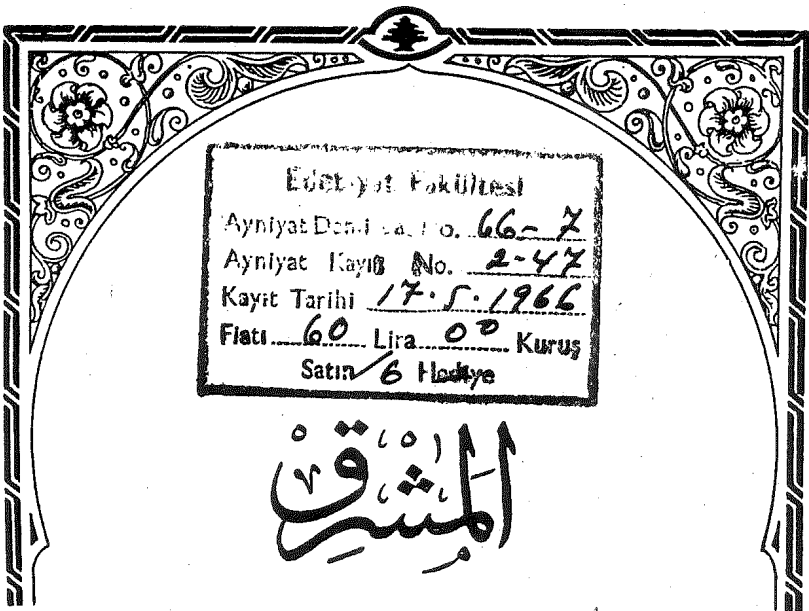 Edebiyat Fakültesi
Ayniyat Demirbaş No. 66-7
Ayniyat Kayıt No. 2-47
Kayıt Tarihi 17.5.1966
Fiatı 60 Lira 00 Kuruş
Satın 6 Hediye
المَشرِق